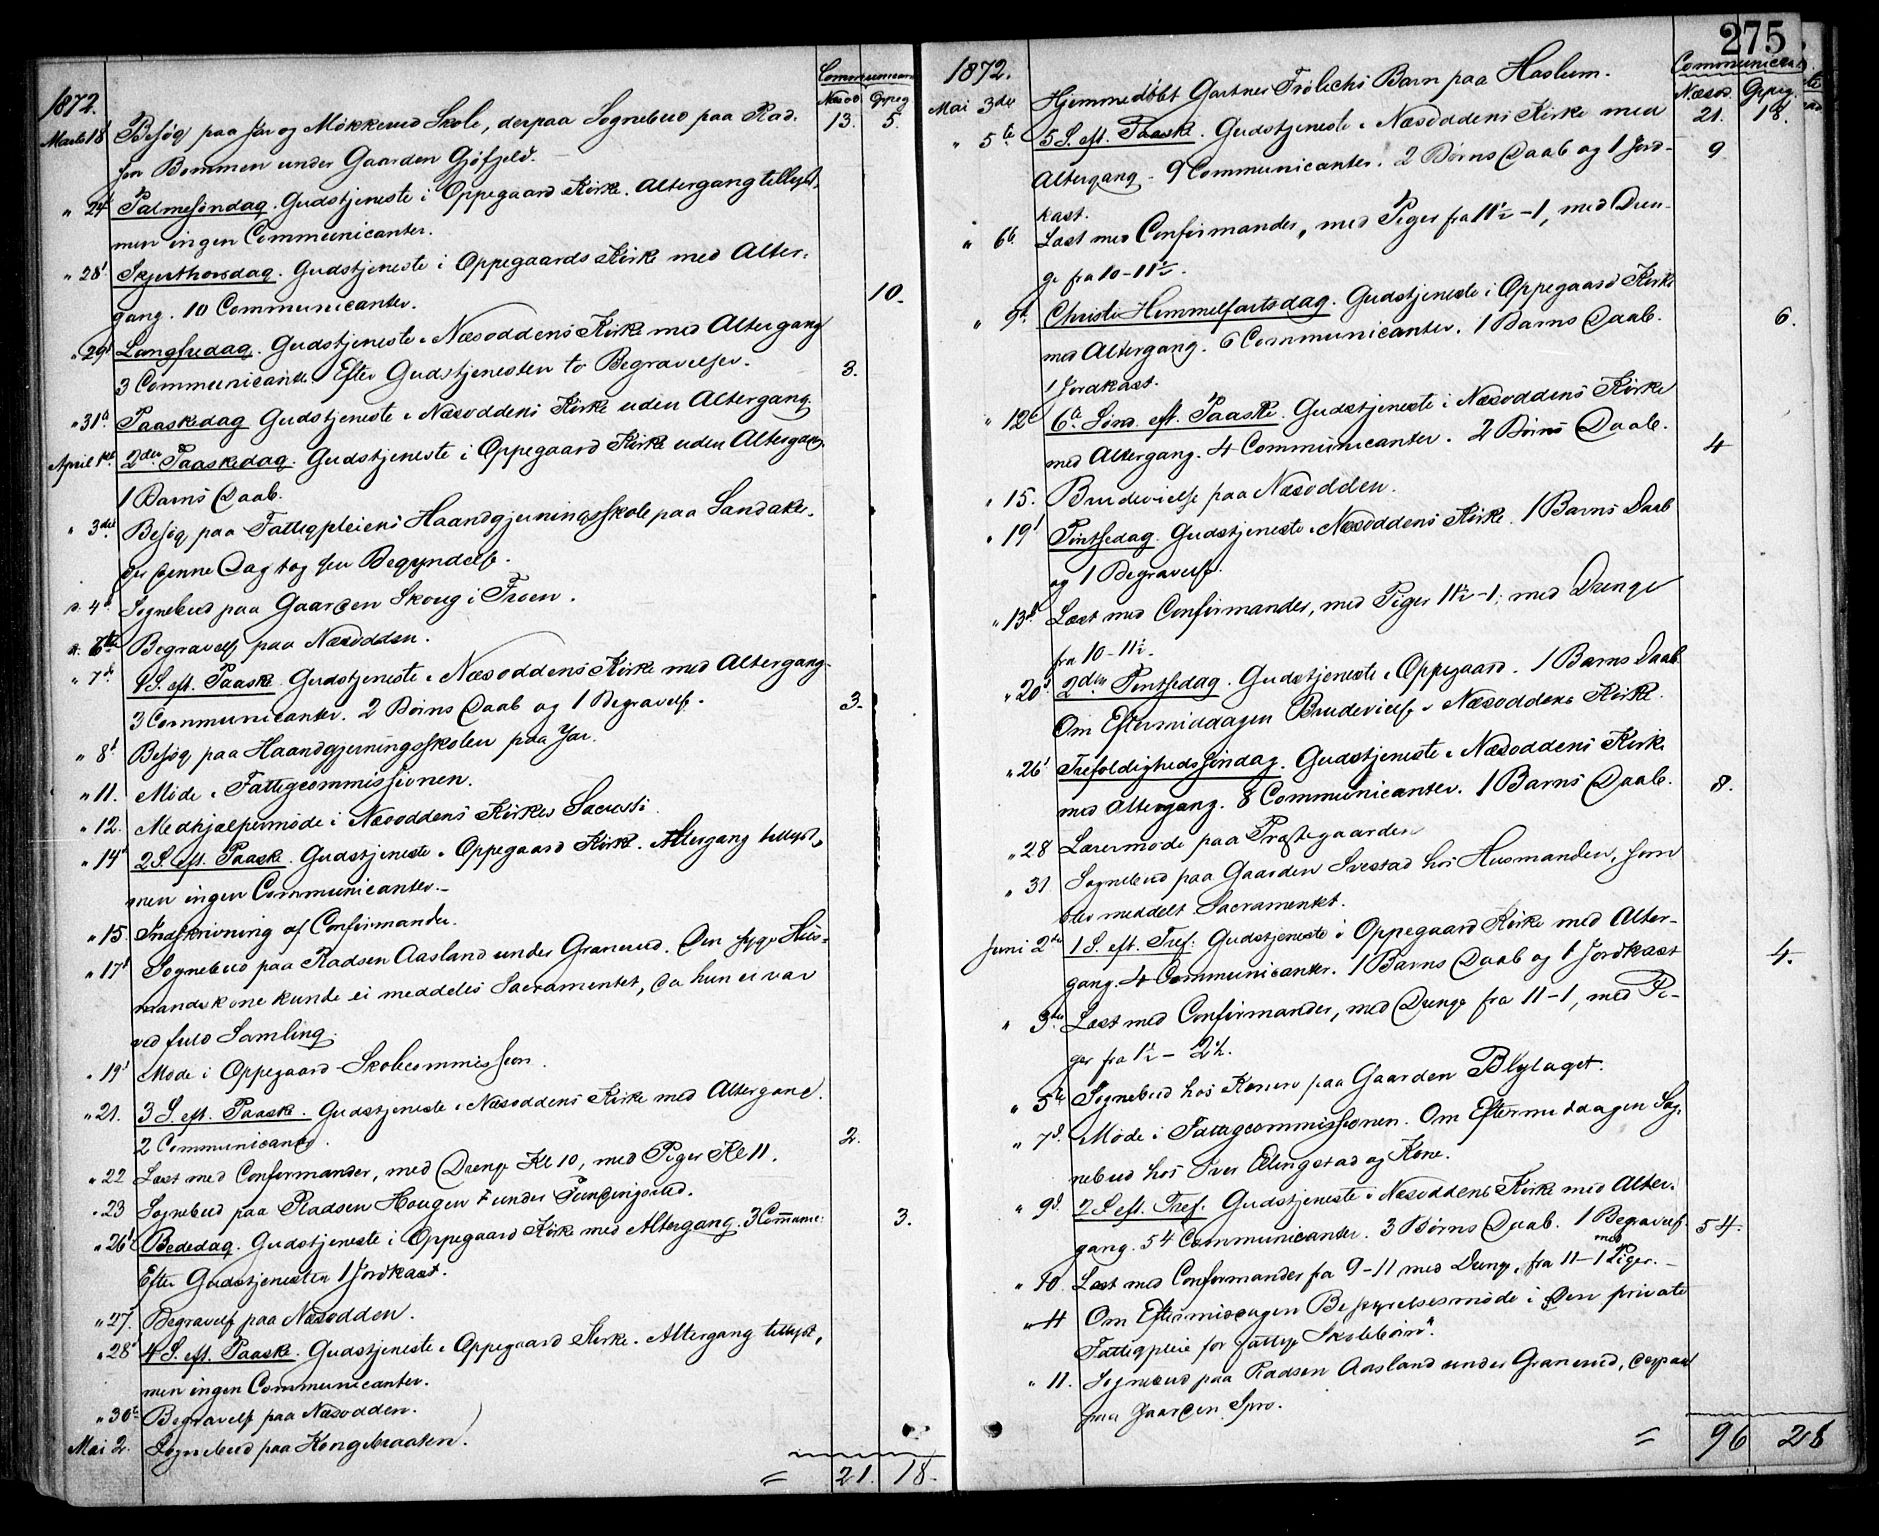 1872.
Communicant
Næsod. Oppeg
Marts 18t Besög paa Jar og Mökkerud Skole, derpaa Sognebud paa Rad- 13. 5.
sen Bommen under Gaarden Gjöfjeld.
" 24d Palmesöndag. Gudstjeneste i Oppegaard Kirke. Altergang tillyst,
men ingen Communicanter.
" 28t Skjærthorsdag. Gudstjeneste i Oppegaards Kirke med Alter-
gang. 10 Communicanter. 10.
" 29d Langfredag. Gudstjeneste i Næsoddens Kirke med Altergang
3 Communicanter Efter Gudstjenesten to Begravelser. 3.
" 31te Paaskedag Gudstjeneste i Næsoddens Kirke uden Altergang
April 1ste 2den Paaskedag. Gudstjeneste i Oppegaard Kirke uden Altergang.
1 Barns Daab.
" 3die Besög paa Fattigpleiens Haandgjerningsskole paa Sandaker,
der denne Dag tog sin Begyndelse.
" 4d Sognebud paa Gaarden Skoug i Froen.
" 6te Begravelse paa Næsodden.
" 7de 1 S. eft. Paaske. Gudstjeneste i Næsoddens Kirke med Altergang
3 Communicanter. 2 Börns Daab og 1 Begravelse. 3.
" 8d Besög paa Haandgjerningsskolen paa Jar.
" 11. Möde i Fattigcommissionen.
" 12. Medhjælpermöde i Næsoddens Kirkes Sacristi
" 14d 2 S. eft. Paaske. Gudstjeneste i Oppegaard Kirke. Altergang tillyst,
men ingen Communicanter.-
" 15. Indskrivning af Confirmander.
" 17d Sognebud paa Radsen Aasland under Granerud. Den syge Hus-
mandskone kunde ei meddeles Sacramentet, da hun ei var
ved fuld Samling.
" 19d Möde i Oppegaard Skolecommission.
" 21. 3 S. eft. Paaske. Gudstjeneste i Næsoddens Kirke med Altergang.
2 Communicanter. 2.
" 22 Læst med Confirmander, med Drenge Kl 10, med Piger Kl 11.
" 23 Sognebud paa Pladsen Hougen under
" 26d Bededag. Gudstjeneste i Oppegaard Kirke med Altergang. 3 Commun: 3.
Efter Gudstjenesten 1 Jordkast.
" 27. Begravelse paa Næsodden.
" 28d 4 S. eft. Paaske. Gudstjeneste i Oppegaard Kirke. Altergang tillyst,
men ingen Communicanter.
" 30te Begravelse paa Næsodden.
Mai 2. Sognebud paa Kongebraaten.
= 21. 18.
275
1872.
Communicant.
Næsod. Oppeg.
Mai 3die Hjemmedöbt Gartner Frölichs Barn paa Haslum. 21. 18.
" 5te 5 S. eft. Paaske. Gudstjeneste i Næsoddens Kirke med
Altergang - 9 Communicanter. 2 Börns Daab og 1 Jord- 9
kast.
" 6te Læst med Confirmander, med Piger fra 11½-1, med Dren-
ge fra 10-11½.
" 9d Christi Himmelfartsdag. Gudstjeneste i Oppegaard Kirke
med Altergang. 6 Communicanter. 1 Barns Daab. 6.
1 Jordkast.
" 12te 6te Sönd. eft. Paaske. Gudstjeneste i Næsoddens Kirke
med Altergang. 4 Communicanter. 2 Börns Daab. 4
" 15. Brudevielse paa Næsodden.
" 19d Pintsedag. Gudstjeneste i Næsoddens Kirke. 1 Barns Daab
og 1 Begravelse.
" 13d Læst med Confirmander, med Piger 11½-1, med Drenge
fra 10-11½.
" 20d 2den Pintsedag. Gudstjeneste i Oppegaard. 1 Barns Daab
Om Eftermiddagen Brudevielse i Næsoddens Kirke.
" 26d Trefoldighedssöndag. Gudstjeneste i Næsoddens Kirke
med Altergang. 8 Communicanter. 1 Barns Daab. 8.
" 28 Lærermöde paa Præstegaarden
" 31 Sognebud paa Gaarden Svestad hos Husmanden, som
blev meddelt Sacramentet.
Juni 2den 1 S. eft. Tref: Gudstjeneste i Oppegaard Kirke med Alter-
gang. 4 Communicanter. 1 Barns Daab og 1 Jordkast 4.
" 3die Læst med Confirmander, med Drenge fra 11-1, med Pi-
ger fra 1½ - 2½.
" 5te Sognebud hos Konen paa Gaarden Blylaget.
" 7d. Möde i Fattigcommissionen. Om Eftermiddagen Sog-
nebud hos Iver Ellingstad og Kone.
" 9d. 2 S. eft. Tref. Gudstjeneste i Næsoddens Kirke med Alter-
gang. 54 Communicanter. 3 Börns Daab. 1 Begravelse. 54.
" 10 Læst med Confirmander fra 9-11 med Drenge, fra 11-1 med Piger.-
" 11 Om Eftermiddagen Bestyrelsesmöde i "Den private
Fattigpleie for fattige Skolebörn".
" 11. Sognebud paa Radsen Aasland under Granerud, derpaa
paa Gaarden Spro.
= 96 28